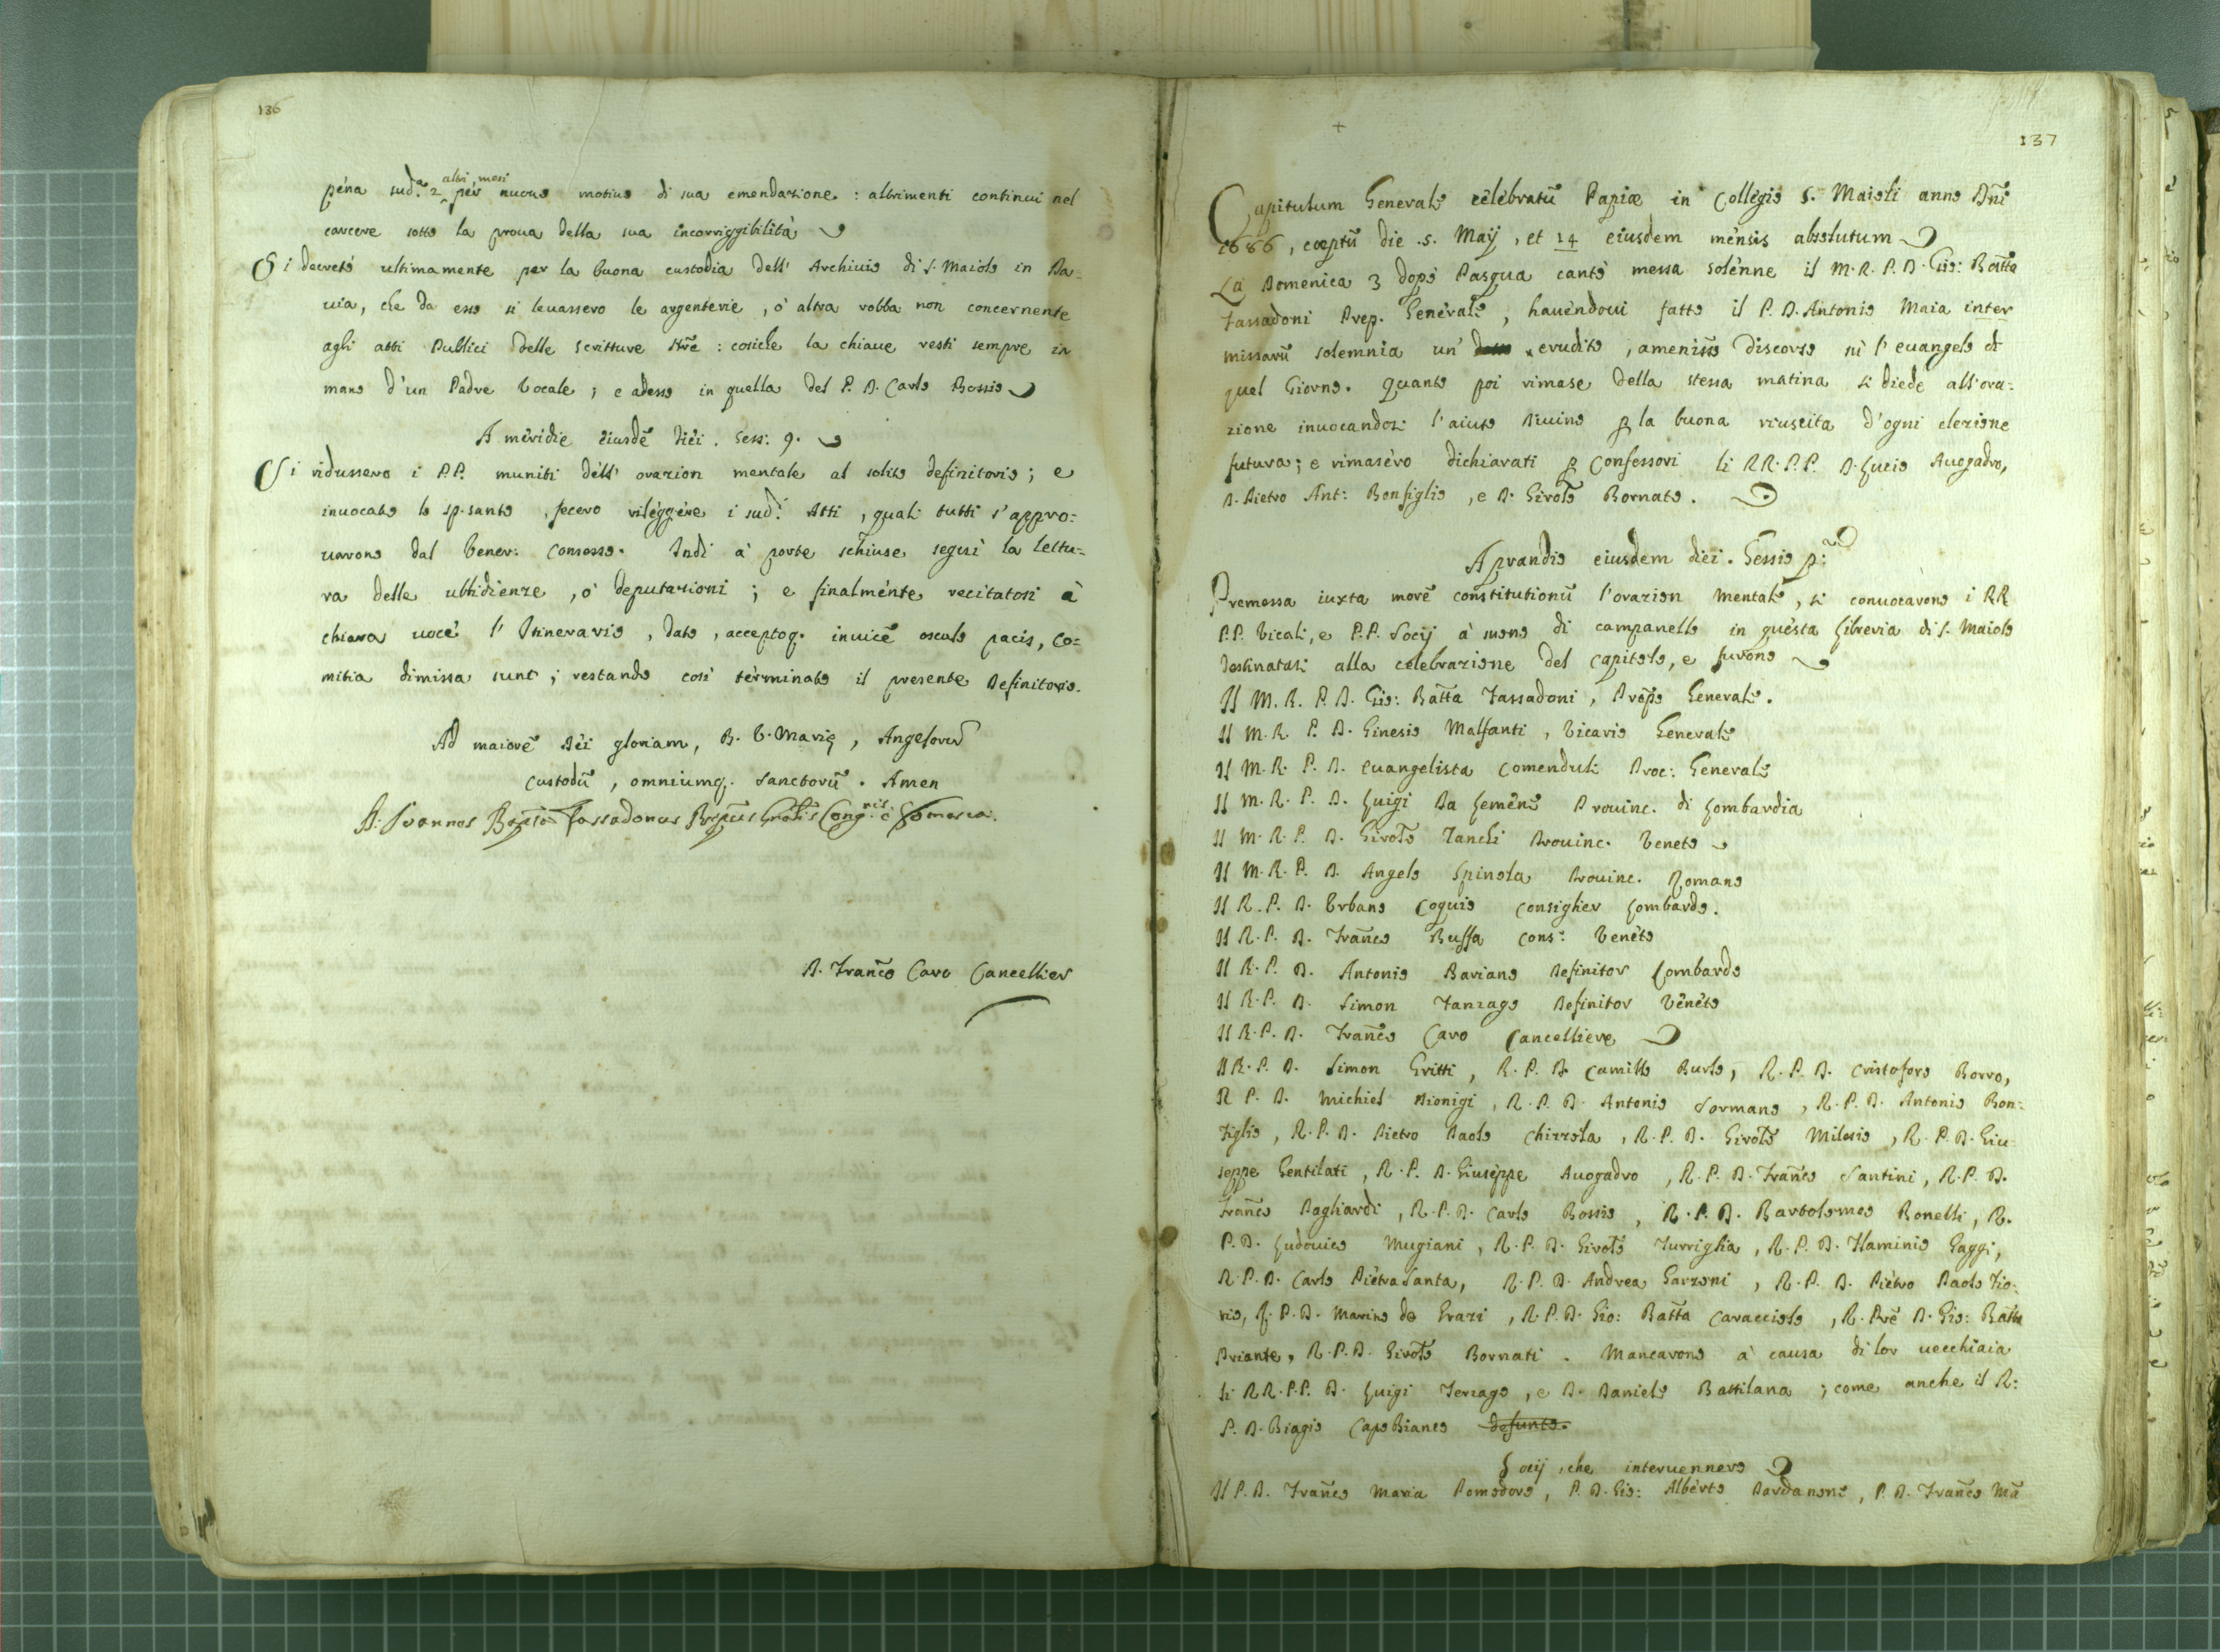 136
pena sud.ª 2 altri mesi per nuouo motiuo di sua emendazione : altrimenti continui nel
carcere sotto la proua della sua incorriggibilità
Si decretò ultimamente per la buona custodia dell' Archiuio di S. Maiolo in Pa=
uia, che da esso si leuassero le argenterie, ò altra robba non concernente
agli atti Publici delle scritture Nr̃e : cosiche la chiaue resti sempre in
mano d'un Padre Vocale ; e adesso in quella del P. D. Carlo Bossio
A meridie eiusdẽ diei. Sess: 9.
Si ridussero i P.P. muniti dell' orazion mentale al solito definitorio ; e
inuocato lo sp. santo, fecero rileggere i sud.i Atti, quali tutti s'appro=
uarono dal Vener: Consesso. Indi à porte schiuse seguì la lettu=
ra delle ubbidienze, ò deputazioni ; e finalmente recitatosi à
chiara uoce l' Itinerario, dato, acceptoq. inuicẽ osculo pacis, Co=
mitia dimissa sunt ; restando così terminato il presente Definitorio.
Ad maiorẽ Dei gloriam, B. V. Marię, Angelorũ
Custodũ, omniumq. Sanctorũ. Amen
D. Franc̃o Caro Cancellier
137
Capitulum Generale celebratũ Papiæ in Collegio S. Maioli anno Dñi
1686, cœptũ die .5. Maij, et 14 eiusdem mensis absolutum
La Domenica 3 dopò Pasqua cantò messa solenne il M. R. P. D. Gio: Batt̃a
Tassadoni Prep. Generale, hauendoui fatto il P. D. Antonio Maia inter
missarũ solemnia un' erudito, amenis̃s̃o discorso sù l'euangelo di
quel Giorno. Quanto poi rimase della stessa matina si diede all'ora=
zione inuocandosi l'aiuto Diuino ꝑ la buona riuscita d'ogni elezione
futura ; e rimasero dichiarati ꝑ Confessori li RR. P.P. D. Luzio Auogadro,
D. Pietro Ant: Bonfiglio, e D. Girol̃o Bornato.
A prandio eiusdem diei. Sessio p:ª
Premessa iuxta morẽ constitutionũ l'orazion mentale, si conuocàrono i RR
P.P. Vocali, e P.P. Socij à suono di campanello in questa Libreria di S. Maiolo
destinatasi alla celebrazione del Capitolo, e furono
Il M. R. P. D. Gio: Batt̃a Tassadoni, Prep̃o Generale.
Il M. R. P. D. Ginesio Malfanti, Vicario Generale
Il M. R. P. D. Euangelista Comenduli Proc: Generale
Il M. R. P. D. Luigi Da Lemene Prouinc. di Lombardia
Il M. R. P. D. Girol̃o Zanchi Prouinc. Veneto
Il M. R. P. D. Angelo Spinola Prouinc. Romano
Il R. P. D. Vrbano Coquio Consiglier Lombardo.
Il R. P. D. Franc̃o Buffa Cons: Veneto
Il R. P. D. Antonio Bariano Definitor Lombardo
Il R. P. D. Simon Fanzago Definitor Veneto
Il R. P. D. Franc̃o Caro Cancelliere
Il R. P. D. Simon Gritti, R. P. D. Camillo Burlo, R. P. D. Cristoforo Borro,
R. P. D. Michiel Dionigi, R. P. D. Antonio Sormano, R. P. D. Antonio Bon=
figlio, R. P. D. Pietro Paolo Chizzola, R. P. D. Girol̃o Milesio, R. P. D. Giu=
seppe Gentilati, R. P. D. Giuseppe Auogadro, R. P. D. Franc̃o Santini, R. P. D.
Franc̃o Pagliardi, R. P. D. Carlo Bossio, R. P. D. Bartolomeo Bonelli, R.
P. D. Ludouico Mugiani, R. P. D. Girol̃o Turriglia, R. P. D. Flaminio Gaggi,
R. P. D. Carlo PietraSanta, R. P. D. Andrea Garzoni, R. P. D. Pietro Paolo Fio=
rio, R. P. D. Marino de Grazi, R. P. D. Gio: Batt̃a Caracciolo, R. Pr̃e D. Gio: Batt̃a
Priante, R. P. D. Girol̃o Bornati. Mancarono à causa di lor uecchiaia
li RR. P.P. D. Luigi Terzago, e D. Daniele Battilana ; come anche il R:
P. D. Biagio CapoBianco defunto.
Socij, che interuennero
Il P. D. Franc̃o Maria Pomodoro, P. D. Gio: Alberto Dardanone, P. D. Franc̃o Mã